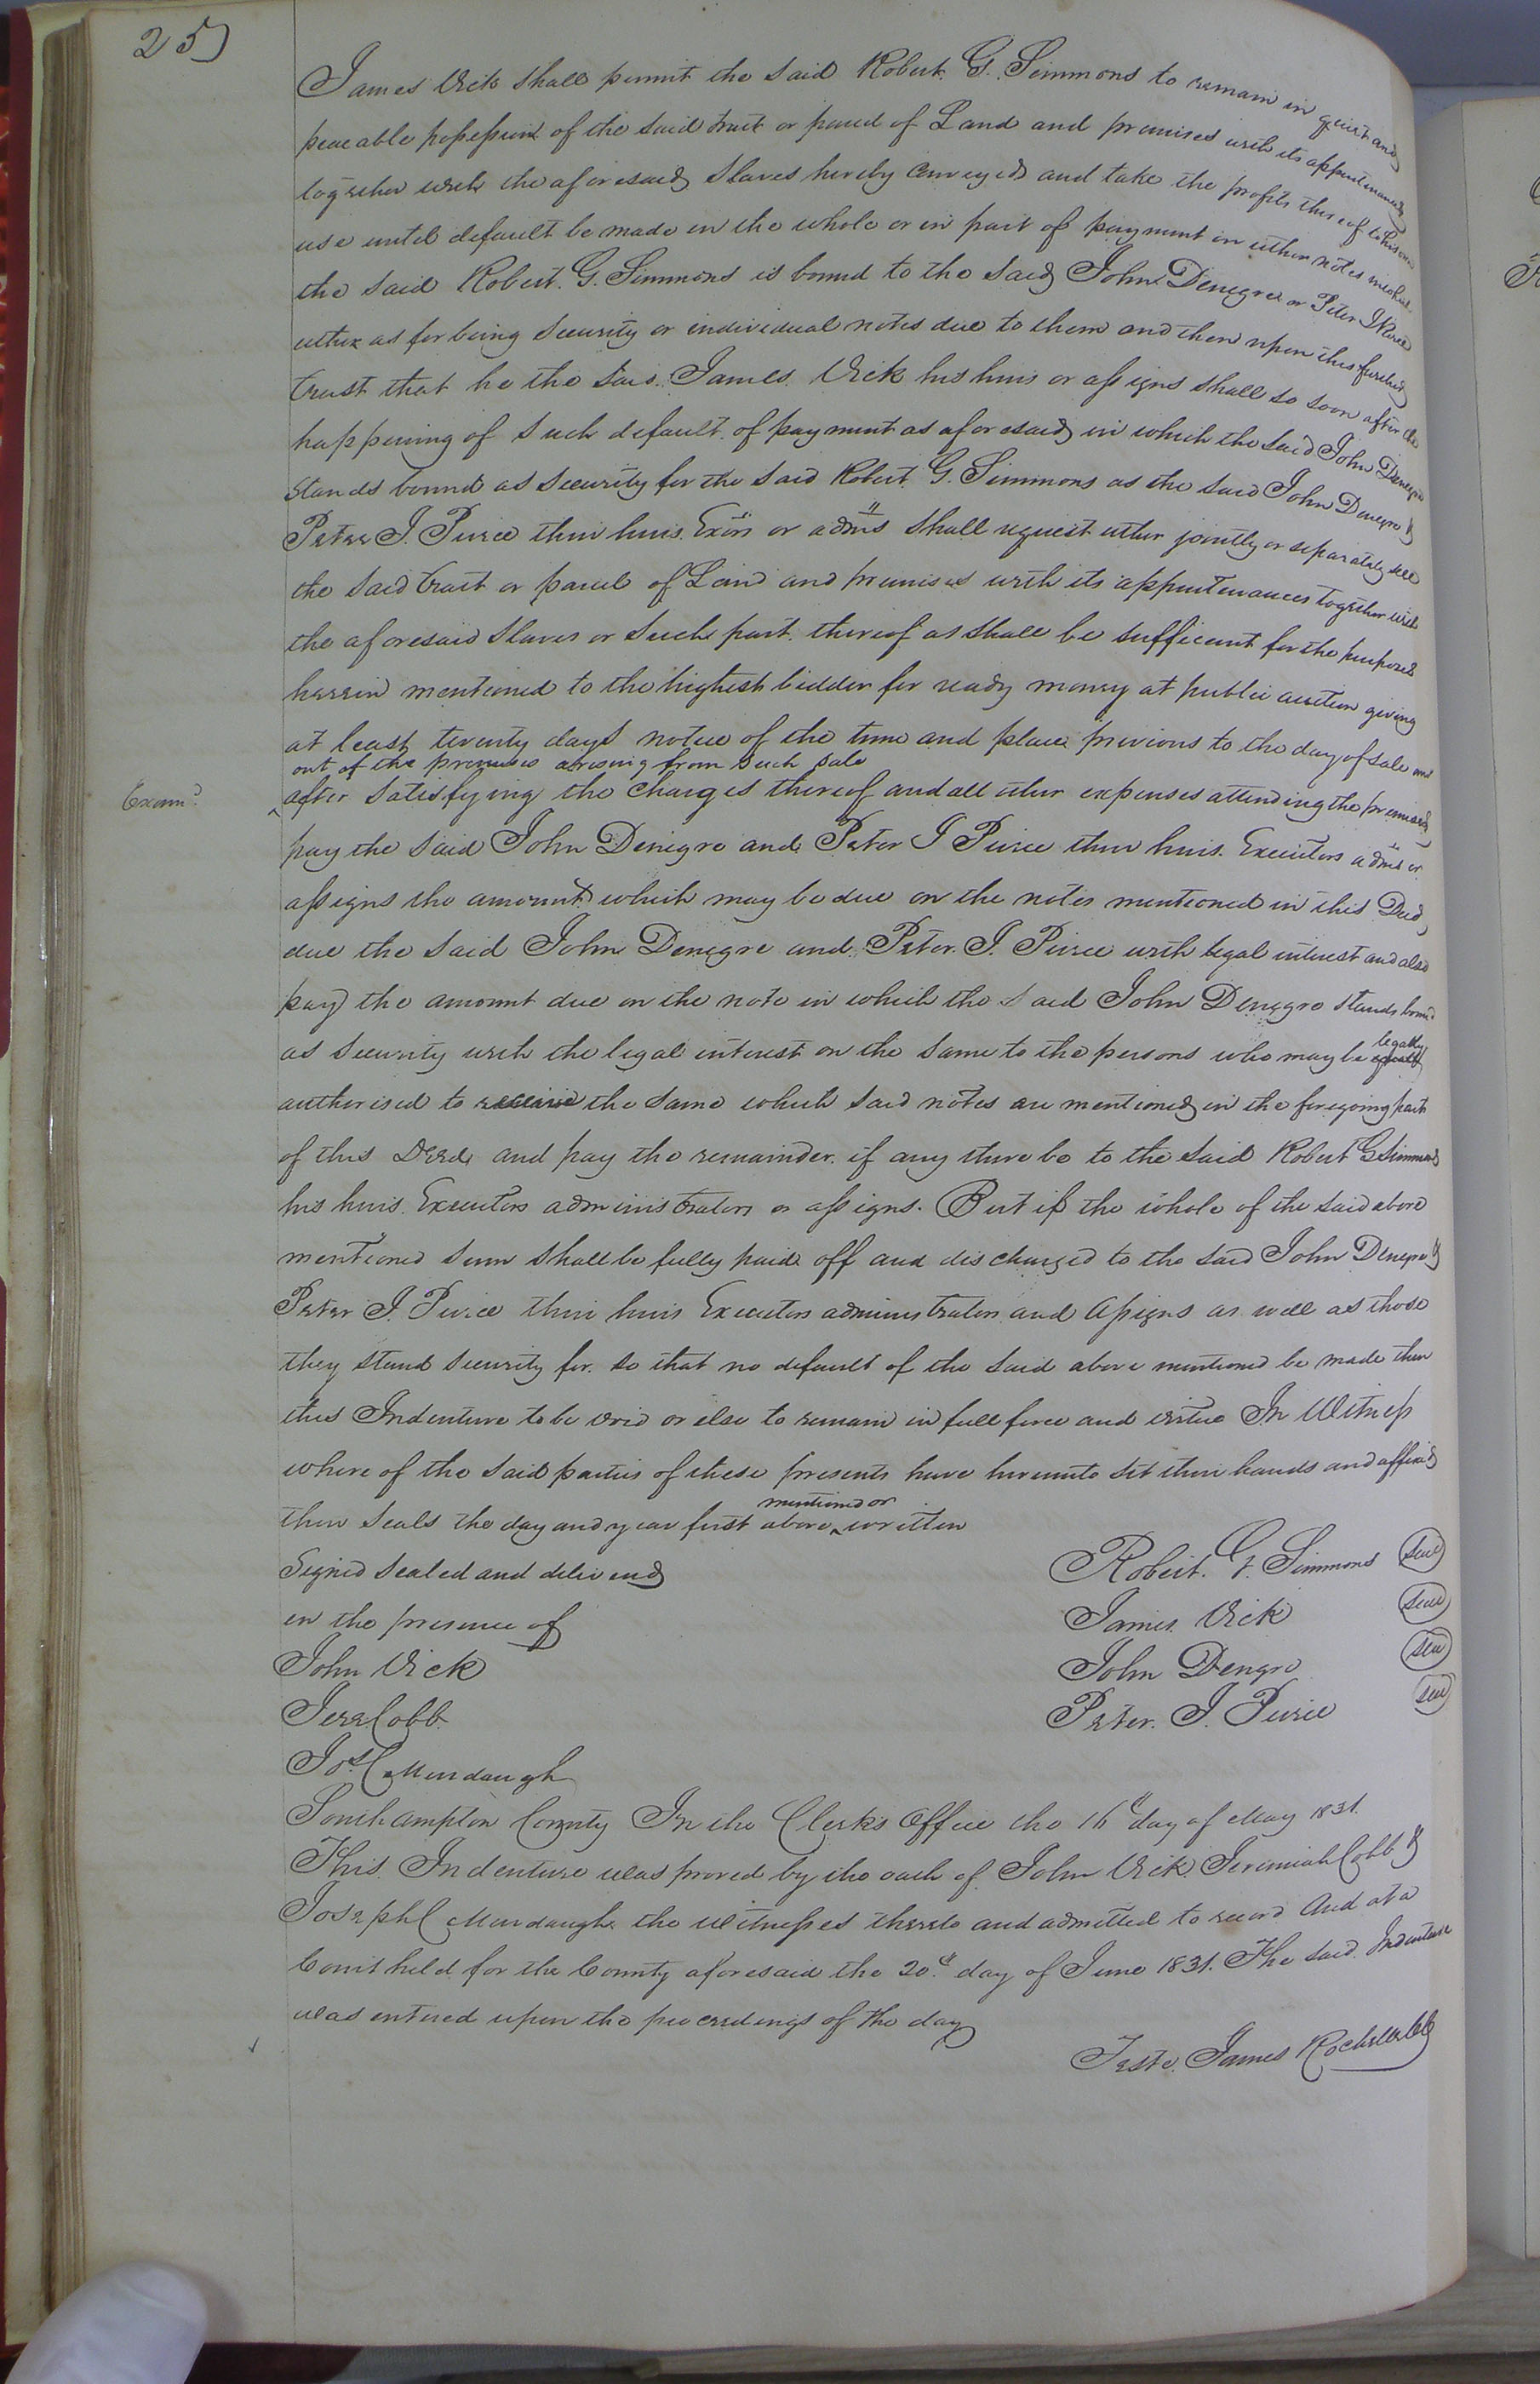 25
James Vick shall permit the said Robert. G. Simmons to remain in quiet and
peaceable possession of the said tract or parcel of Land and premises with its appurtenances
together with the aforesaid Slaves hereby Conveyed and take the profits thereof to his own
use until default be made in the whole or in part of payment in either notes in which
the said Robert. G. Simmons is bound to the said John Denegre or Peter J Pierce
either as for being Security or individual notes due to them and then upon this further
trust that he the said. James. Vick his heirs or assigns shall so soon after the
happening of such default. of payment as aforesaid in which the said John Denegre
Stands bound as Security for the said Robert. G. Simmons as the said John Denegre &
Peter J. Peirce their heirs. Exōrs or admrs shall request either jointly or separately sell
the said tract or parcel of Land and premises with its appurtenances together with
the aforesaid Slaves or Such part. thereof as shall be sufficient for the purposes
herein mentioned to the highest bidder for ready money at public auction giving
at least twenty days notice of the time and place previous to the day of sale and
out of the premises arising from such sale
Examd.
after satisfying the charges thereof and all other expenses attending the premises
pay the said John Denegre and Peter J Peirce their heirs. Executors admrs or
assigns the amount which may be due on the notes mentioned in this Deed
due the said John Denegre and. Peter. J. Peirce with legal interest and also
pay the amount due on the note in which the said John Denegre stands bound
legally
as Security with the legal interest on the same to the persons who may be
authorised to receive the same which said notes are mentioned in the foregoing part
of this Deed and pay the remainder. if any there be to the said Robert G Simmons
his heirs. Executors administrators or assigns. But if the whole of the said above
mentioned sum shall be fully paid off and discharged to the said John Denegre &
Peter J. Peirce their heirs Executors administrators and Assigns as well as those
they stand Security for. so that no default of the said above mentioned be made then
this Indenture to be void or else to remain in full force and virtue In Witness
where of the said parties of these presents have hereunto set their hands and affixed
mentioned or
their seals the day and year first above written
Signed Sealed and delivered
in the presence of
John Vick
Jere Cobb.
Jos. C Murdaugh
Robert. G. Simmons Seal
James. Vick Seal
John Dengre Seal
Peter. J. Peirce Seal
Southampton County In the Clerks Office the 16th day of May 1831.
This. Indenture was proved by the oath of John Vick. Jeremiah Cobb &
Joseph C Murdaugh the witnesses thereto and admitted to record And at a
Court held for the County aforesaid the 20th day of June 1831. The said. Indenture
was entered upon the proceedings of the day
Teste. James Rochelle Clk